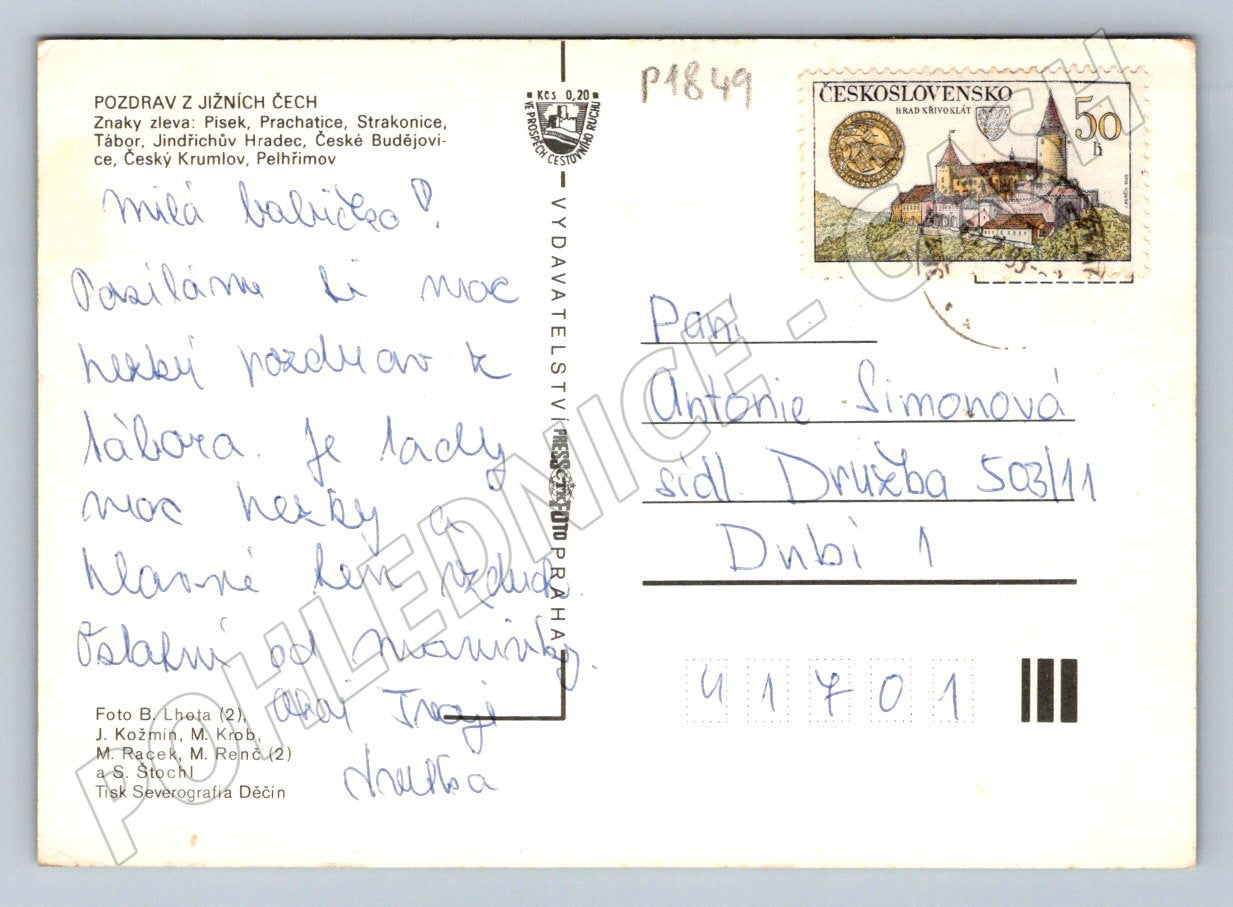 POZDRAV Z JIŽNÍCH ČECH
Znaky zleva: Písek, Prachatice, Strakonice,
Tábor, Jindřichův Hradec, České Budějovi-
ce, Český Krumlov, Pelhřimov
Milá babičko!
Posíláme ti moc
hezký pozdrav z
tábora. Je tady
moc hezky a
hlavně ten vzduch.
Ostatní od maminky.
Ahoj Tvoje
Foto B. Lhota (2),
J. Kožmín, M. Krob,
M. Racek, M. Renč (2)
a S. Štochl
Tisk Severografia Děčín
Kčs 0,20
VE PROSPĚCH CESTOVNÍHO RUCHU
VYDAVATELSTVÍ PRESSFOTO PRAHA
P1849
ČESKOSLOVENSKO
HRAD KŘIVOKLÁT
50
h
Paní
Antonie Simonová
sídl. Družba 503/11
Dubí 1
41701
POHLEDNICE - CASH